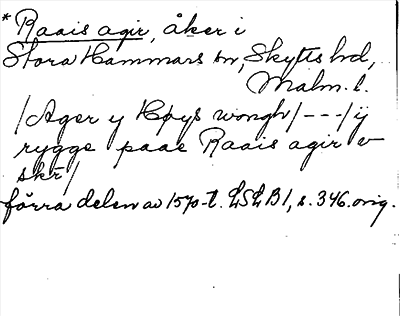 * Raais agir, åker i
Stora Hammars sn, Skytts hd,
Malm. l.
/Ager y Høys wongh/---/ij
rygge paae Raais agir v
skr/
förra delen av 1570-t. LSLB1, s. 346. orig.